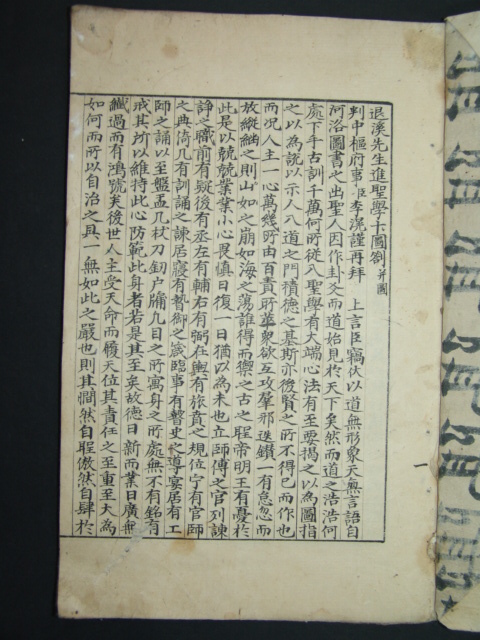 退溪先生進聖學十圖劄 并圖
判中樞府事臣李滉謹再拜 上言臣竊伏以道無形象天無言語自
河洛圖書之出聖人因作卦爻而道始見於天下矣然而道之浩浩何
處下手古訓千萬何所從入聖學有大端心法有至要揭之以為圖指
之以為說以示人入道之門積德之基斯亦後賢之所不得已而作也
而况人主一心萬幾所由百責所萃衆欲互攻羣邪迭鑽一有怠忽而
放縱繼之則山如之崩如海之蕩誰得而禦之古之聖帝明王有憂於
此是以兢兢業業小心畏愼日復一日猶以為未也立師傅之官列諫
諍之職前有疑後有丞左有輔右有弼在輿有旅賁之規位宁有官師
之典倚几有訓誦之諫居寢有暬御之箴臨事有瞽史之導宴居有工
師之誦以至盤盂几杖刀劒户牖凡目之所寓身之所處無不有銘有
戒其所以維持此心防範此身者若是其至矣故德日新而業日廣無
纖過而有鴻號矣後世人主受天命而履天位其責任之至重至大為
如何而所以自治之具一無如此之嚴也則其憪然自聖傲然自肆於